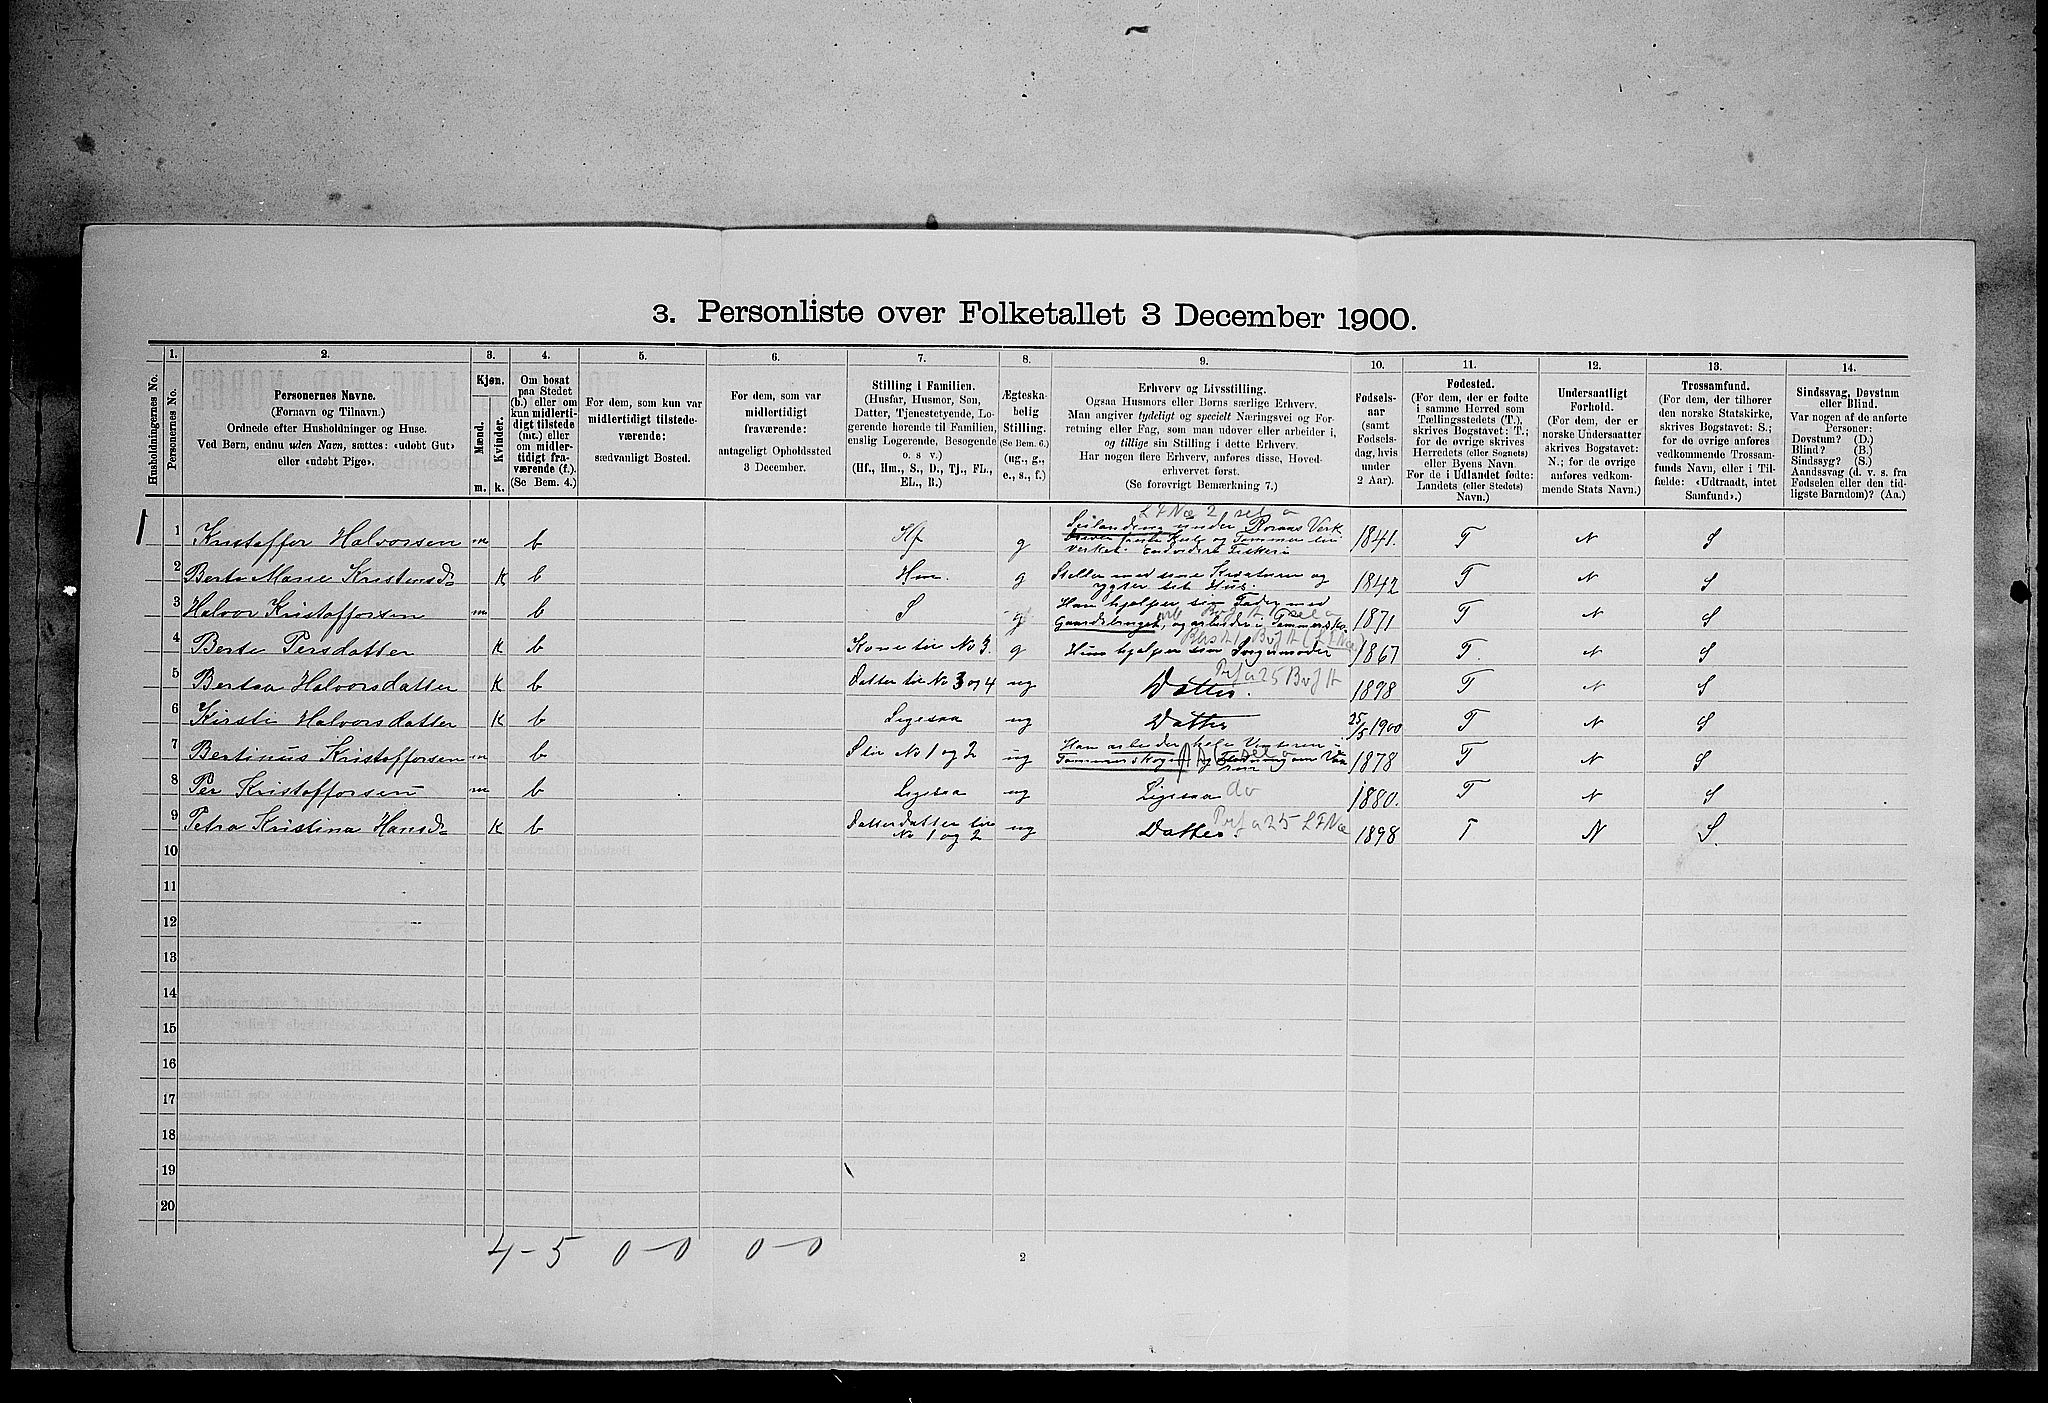 3. Personliste over Folketallet 3 December 1900.
Husholdningernes No.
1.
Personernes No.
2.
Personernes Navne.
(Fornavn og Tilnavn.)
Ordnede efter Husholdninger og Huse.
Ved Børn, endnu uden Navn, sættes: «udøbt Gut»
eller «udøbt Pige».
3.
Kjøn.
Mænd.
Kvinder.
m. k.
4.
Om bosat
paa Stedet
(b.) eller om
kun midlerti-
digt tilstede
(mt.) eller
om midler-
tidigt fra-
værende (f.).
(Se Bem. 4.)
5.
For dem, som kun var
midlertidigt tilstede-
værende:
sædvanligt Bosted.
6.
For dem, som var
midlertidigt
fraværende:
antageligt Opholdssted
3 December.
7.
Stilling i Familien.
(Husfar, Husmor, Søn,
Datter, Tjenestetyende, Lo-
gerende hørende til Familien,
enslig Logerende, Besøgende
o. s. v.)
(Hf., Hm., S., D., Tj., FL.,
EL., B.)
8.
Ægteska-
belig
Stilling.
(Se Bem. 6.)
(ug., g.,
e., s., f.)
9.
Erhverv og Livsstilling.
Ogsaa Husmors eller Børns særlige Erhverv.
Man angiver tydeligt og specielt Næringsvei og For-
retning eller Fag, som man udøver eller arbeider i,
og tillige sin Stilling i dette Erhverv.
Har nogen flere Erhverv, anføres disse, Hoved-
erhvervet først.
(Se forøvrigt Bemærkning 7.)
10.
Fødsels-
aar
(samt
Fødsels-
dag, hvis
under
2 Aar).
11.
Fødested.
(For dem, der er fødte
i samme Herred som
Tællingsstedets (T.),
skrives Bogstavet: T.;
for de øvrige skrives
Herredets (eller Sognets)
eller Byens Navn.
For de i Udlandet fødte:
Landets (eller Stedets)
Navn.)
12.
Undersaatligt
Forhold.
(For dem, der er
norske Undersaatter
skrives Bogstavet:
N.; for de øvrige
anføres vedkom-
mende Stats Navn.)
13.
Trossamfund.
(For dem, der tilhører
den norske Statskirke,
skrives Bogstavet: S.;
for de øvrige anføres
vedkommende Trossam-
funds Navn, eller i Til-
fælde: «Udtraadt, intet
Samfund».)
14.
Sindssvag, Døvstum
eller Blind.
Var nogen af de anførte
Personer:
Døvstum? (D.)
Blind? (B.)
Sindssyg? (S.)
Aandssvag (d. v. s. fra
Fødselen eller den tid-
ligste Barndom)? (Aa.)
1 1 Kristoffer Halvorsen m b Hf g under Røraas Verk 1841. T N S
2 Berte Marie Kristensd. K b Hm. g Steller med sine Kreaturer og 1842 T N S
3 Halvor Kristoffersen m b S g Han hjælper sin Fader med Gaardsbruget, og arbeider i 1871 T N S
4 Berte Persdatter K b Kone til No 3. g hjælper sin Svigermoder 1867 T. N S
5 Bertea Halvorsdatter K b Datter til No 3 og 4 ug Datter. 1898 T N S
6 Kirsti Halvorsdatter K b Ligesaa ug Datter 25/5 1900 T N S
7 Bertinus Kristoffersen m b S til No 1 og 2 ug Han arbeider hele Vinteren i Tømmerskogen 1878 T N S
8 Per Kristoffersen m b Ligesaa ug Ligesaa do 1880. T N S
9 Petra Kristina Hansd. K b Datterdatter til No 1 og 2 ug Datter. 1898 T N S.
10
11
12
13
14
15
16
17
18
19
20
4-5 0-0 0-0
2